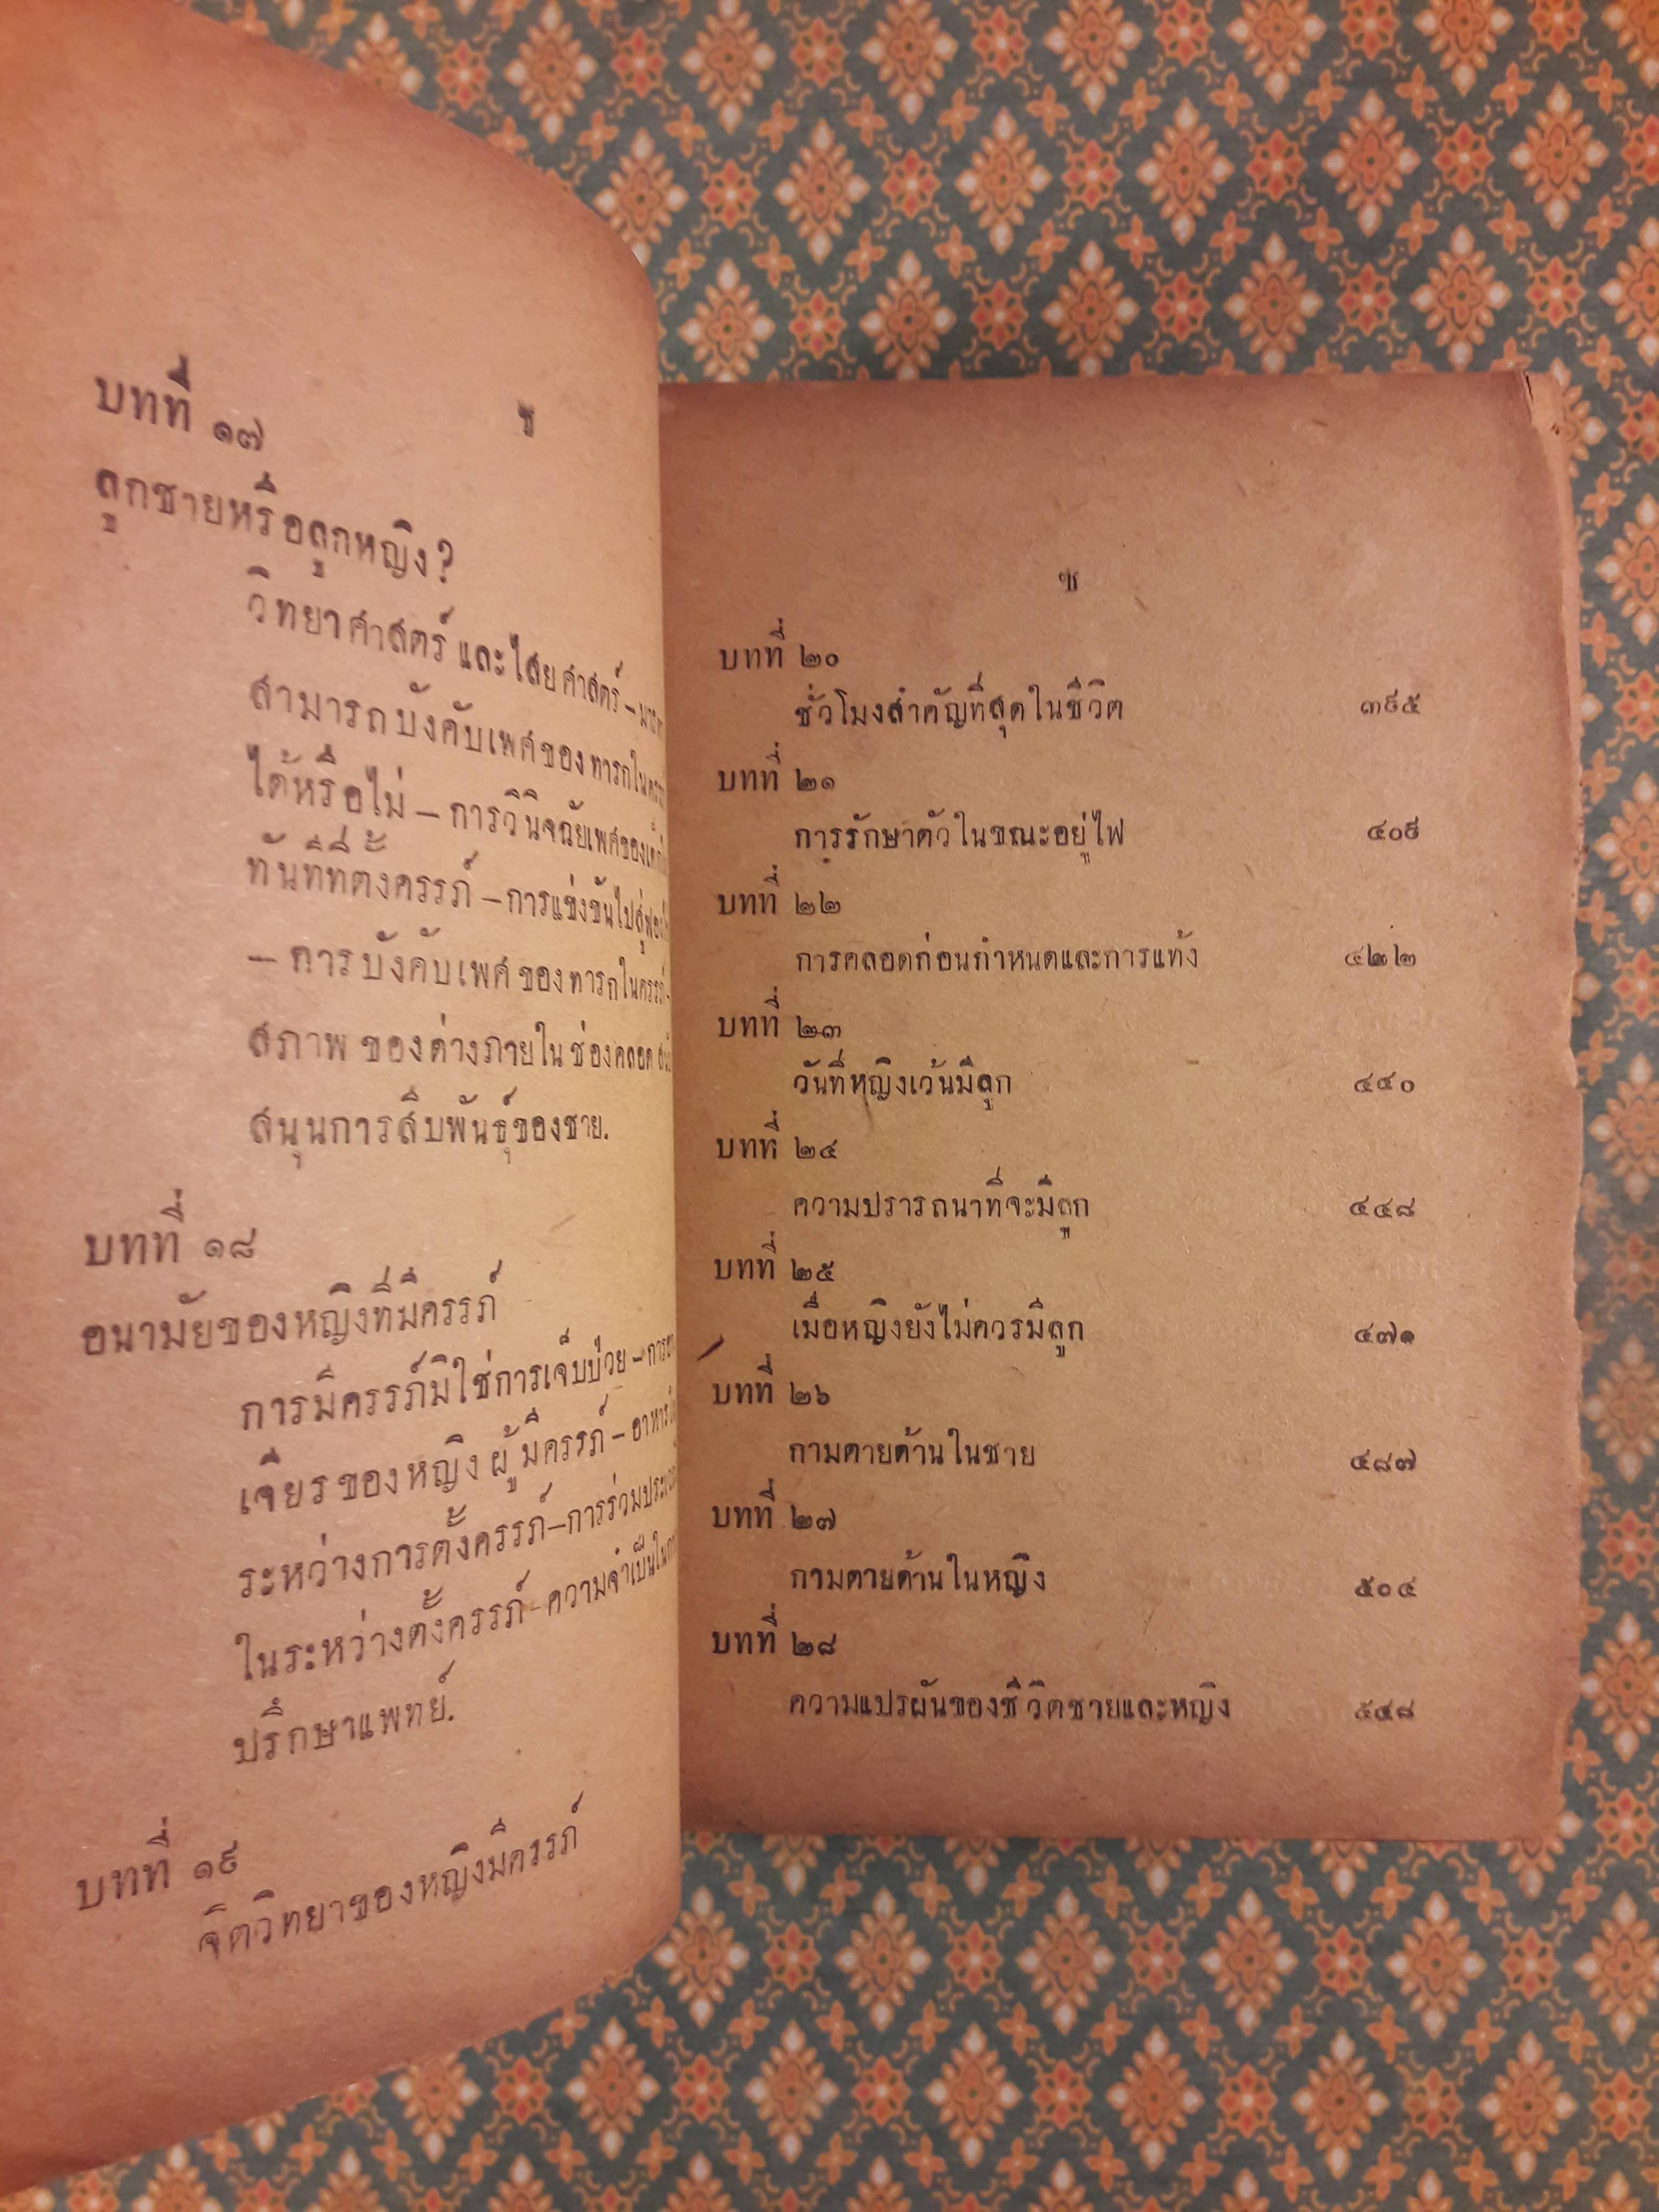 ช
บทที่ ๑๗
ลูกชายหรือลูกหญิง?
วิทยาศาสตร์ และไสยศาสตร์ –
สามารถบังคับเพศของทารกใน
ได้หรือไม่ – การวินิจฉัยเพศของ
ทันทีที่ตั้งครรภ์ – การแข่งขันไปสู่
– การบังคับเพศของทารกในครรภ์ –
สภาพของด่างภายในช่องคลอด
สนุนการสืบพันธุ์ของชาย.
บทที่ ๑๘
อนามัยของหญิงที่มีครรภ์
การมีครรภ์มิใช่การเจ็บป่วย –
เจียรของหญิงผู้มีครรภ์ – อาหาร
ระหว่างการตั้งครรภ์–การร่วม
ในระหว่างตั้งครรภ์–ความจำเป็นใน
ปรึกษาแพทย์.
บทที่ ๑๙
จิตวิทยาของหญิงมีครรภ์
ซ
บทที่ ๒๐
ชั่วโมงสำคัญที่สุดในชีวิต ๓๙๕
บทที่ ๒๑
การรักษาตัวในขณะอยู่ไฟ ๔๐๙
บทที่ ๒๒
การคลอดก่อนกำหนดและการแท้ง ๔๒๒
บทที่ ๒๓
วันที่หญิงเว้นมีลูก ๔๔๐
บทที่ ๒๔
ความปรารถนาที่จะมีลูก ๔๔๘
บทที่ ๒๕
เมื่อหญิงยังไม่ควรมีลูก ๔๗๑
บทที่ ๒๖
กามตายด้านในชาย ๔๘๗
บทที่ ๒๗
กามตายด้านในหญิง ๕๐๔
บทที่ ๒๘
ความแปรผันของชีวิตชายและหญิง ๕๔๘